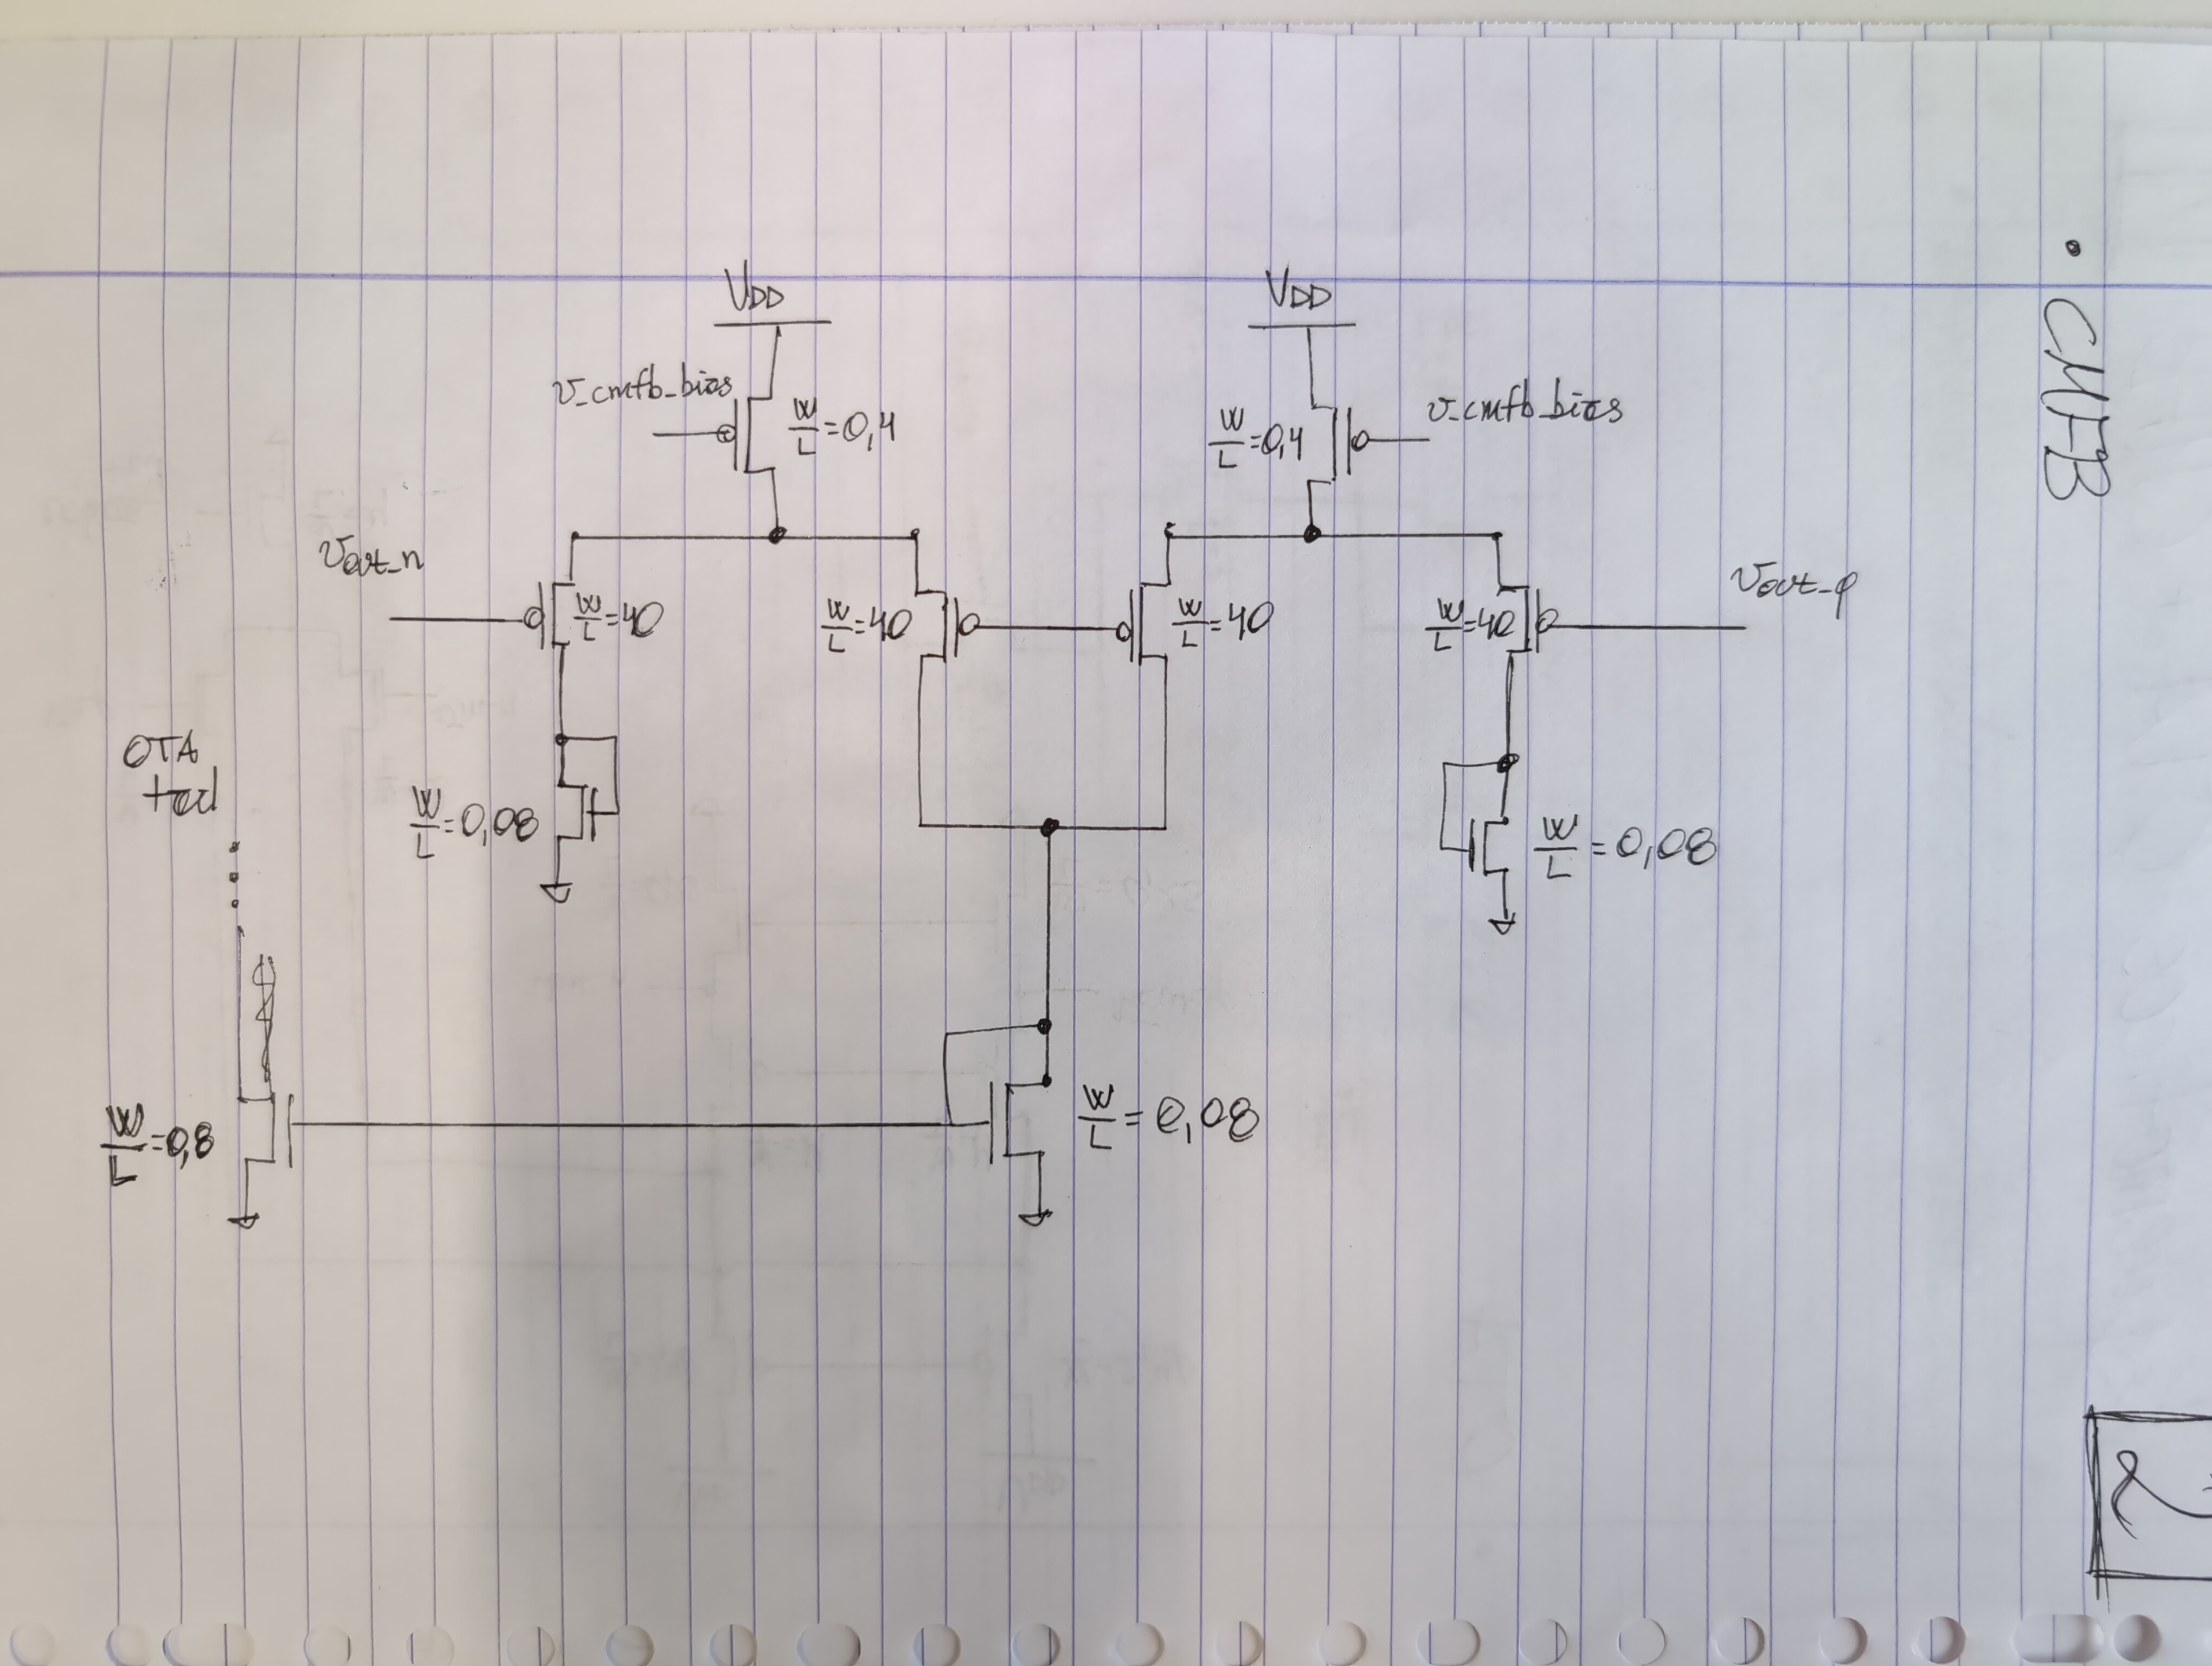 • CMFB
VDD
VDD
v_cmfb_bias
W/L=0,4
W/L=0,4
v_cmfb_bias
Vout_n
W/L=40
W/L=40
W/L=40
W/L=40
Vout_p
OTA
tail
W/L=0,08
W/L=0,08
W/L=0,8
W/L=0,08
2